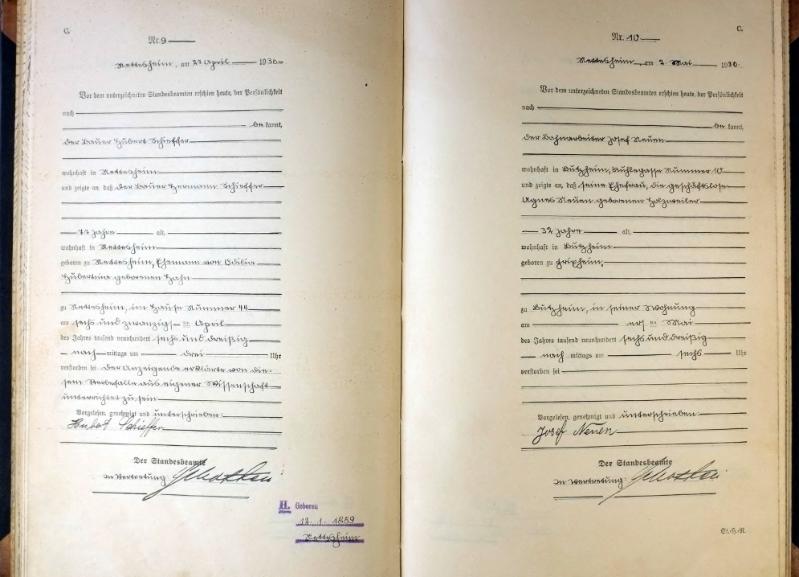 C.
Nr. 9
Nettesheim, am 27 April 1936
Vor dem unterzeichneten Standesbeamten erschien heute, der Persönlichkeit
nach
bekannt,
der Bauer Hubert Schieffer
wohnhaft in Nettesheim
und zeigte an, daß der Bauer Hermann Schieffer
77 Jahre alt,
wohnhaft in Nettesheim
geboren zu Nettesheim, Ehemann von Odilia
Hubertina geborenen Hahn
zu Nettesheim, im Hause Nummer 44
am sechs und zwanzigsten April
des Jahres tausend neunhundert sechs und dreißig
nach mittags um drei Uhr
verstorben sei der Anzeigende erklärte von die-
sem Sterbefalle aus eigener Wissenschaft
unterrichtet zu sein
Vorgelesen, genehmigt und unterschrieben
Hubert Schieffer
Der Standesbeamte
In Vertretung
H. Geboren
12. 1. 1859
Nettesheim
C.
Nr. 10
Nettesheim, am 2. Mai 1936
Vor dem unterzeichneten Standesbeamten erschien heute, der Persönlichkeit
nach
bekannt,
der Bahnarbeiter Josef Neuen
wohnhaft in Butzheim, Nummer 10
und zeigte an, daß seine Ehefrau, die geschäftslose
Agnes Neuen geborenen Holzweiler
32 Jahre alt,
wohnhaft in Butzheim
geboren zu
zu Butzheim, in seiner Wohnung
am ersten Mai
des Jahres tausend neunhundert sechs und dreißig
nach mittags um sechs Uhr
verstorben sei
Vorgelesen, genehmigt und unterschrieben
Josef Neuen
Der Standesbeamte
In Vertretung